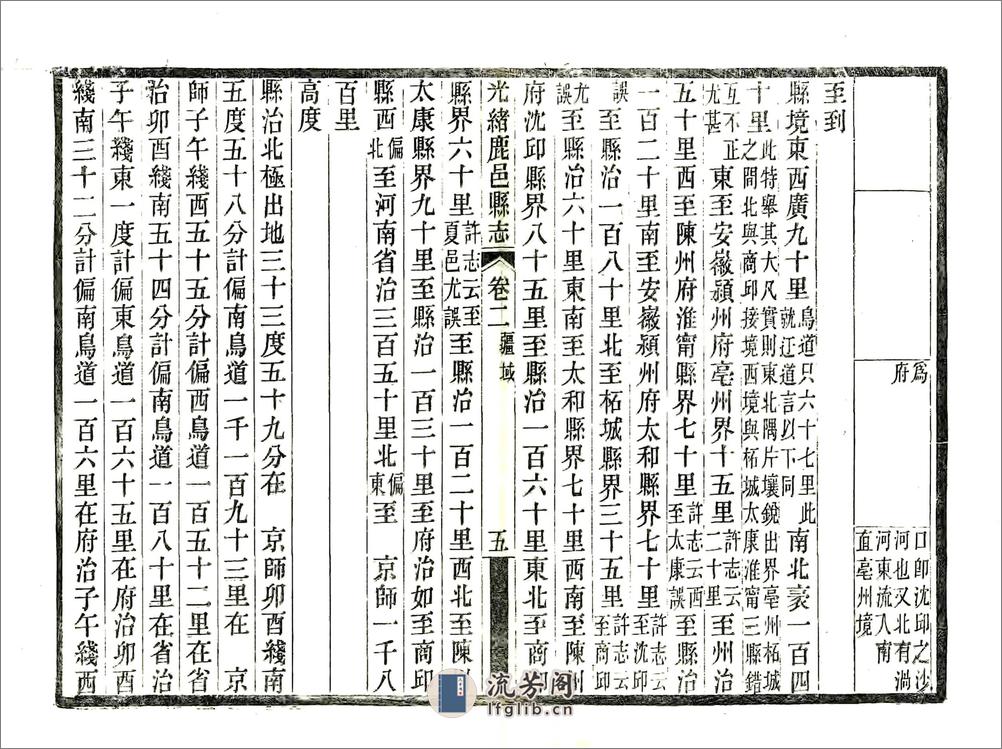 爲
府
口卽沈邱之沙
河也又北有渦
河東流入南
直亳州境
至到
縣境東西廣九十里鳥道只六十七里此就迂道言以下同南北袤一百四
十里此特舉其大凡實則東北隅片壤銳出界亳州柘城之間北與商邱接境西境與柘城太康淮甯三縣錯
互不正尤甚東至安徽潁州府亳州界十五里許志云二十里南至縣治
五十里西至陳州府淮甯縣界七十里許志云西至太康誤至縣治
一百二十里南至安徽潁州府太和縣界七十里許志云至沈邱
誤至縣治一百八十里北至柘城縣界三十五里許志云至商邱
尤誤至縣治六十里東南至太和縣界七十里西南至陳州
府沈邱縣界八十五里至縣治一百六十里東北至商邱
光緒鹿邑縣志 卷二 疆域 五
縣界六十里許志云至夏邑尤誤至縣治一百二十里西北至陳州
太康縣界九十里至縣治一百三十里至府治如至商邱
縣西偏北至河南省治三百五十里北偏東至 京師一千八
百里
高度
縣治北極出地三十三度五十九分在 京師卯酉綫南
五度五十八分計偏南鳥道一千一百九十三里在 京
師子午綫西五十五分計偏西鳥道一百五十二里在省
治卯酉綫南五十四分計偏南鳥道一百八十里在省治
子午綫東一度計偏東鳥道一百六十五里在府治卯酉
綫南三十二分計偏南鳥道一百六里在府治子午綫西
流芳閣
lfglib.cn